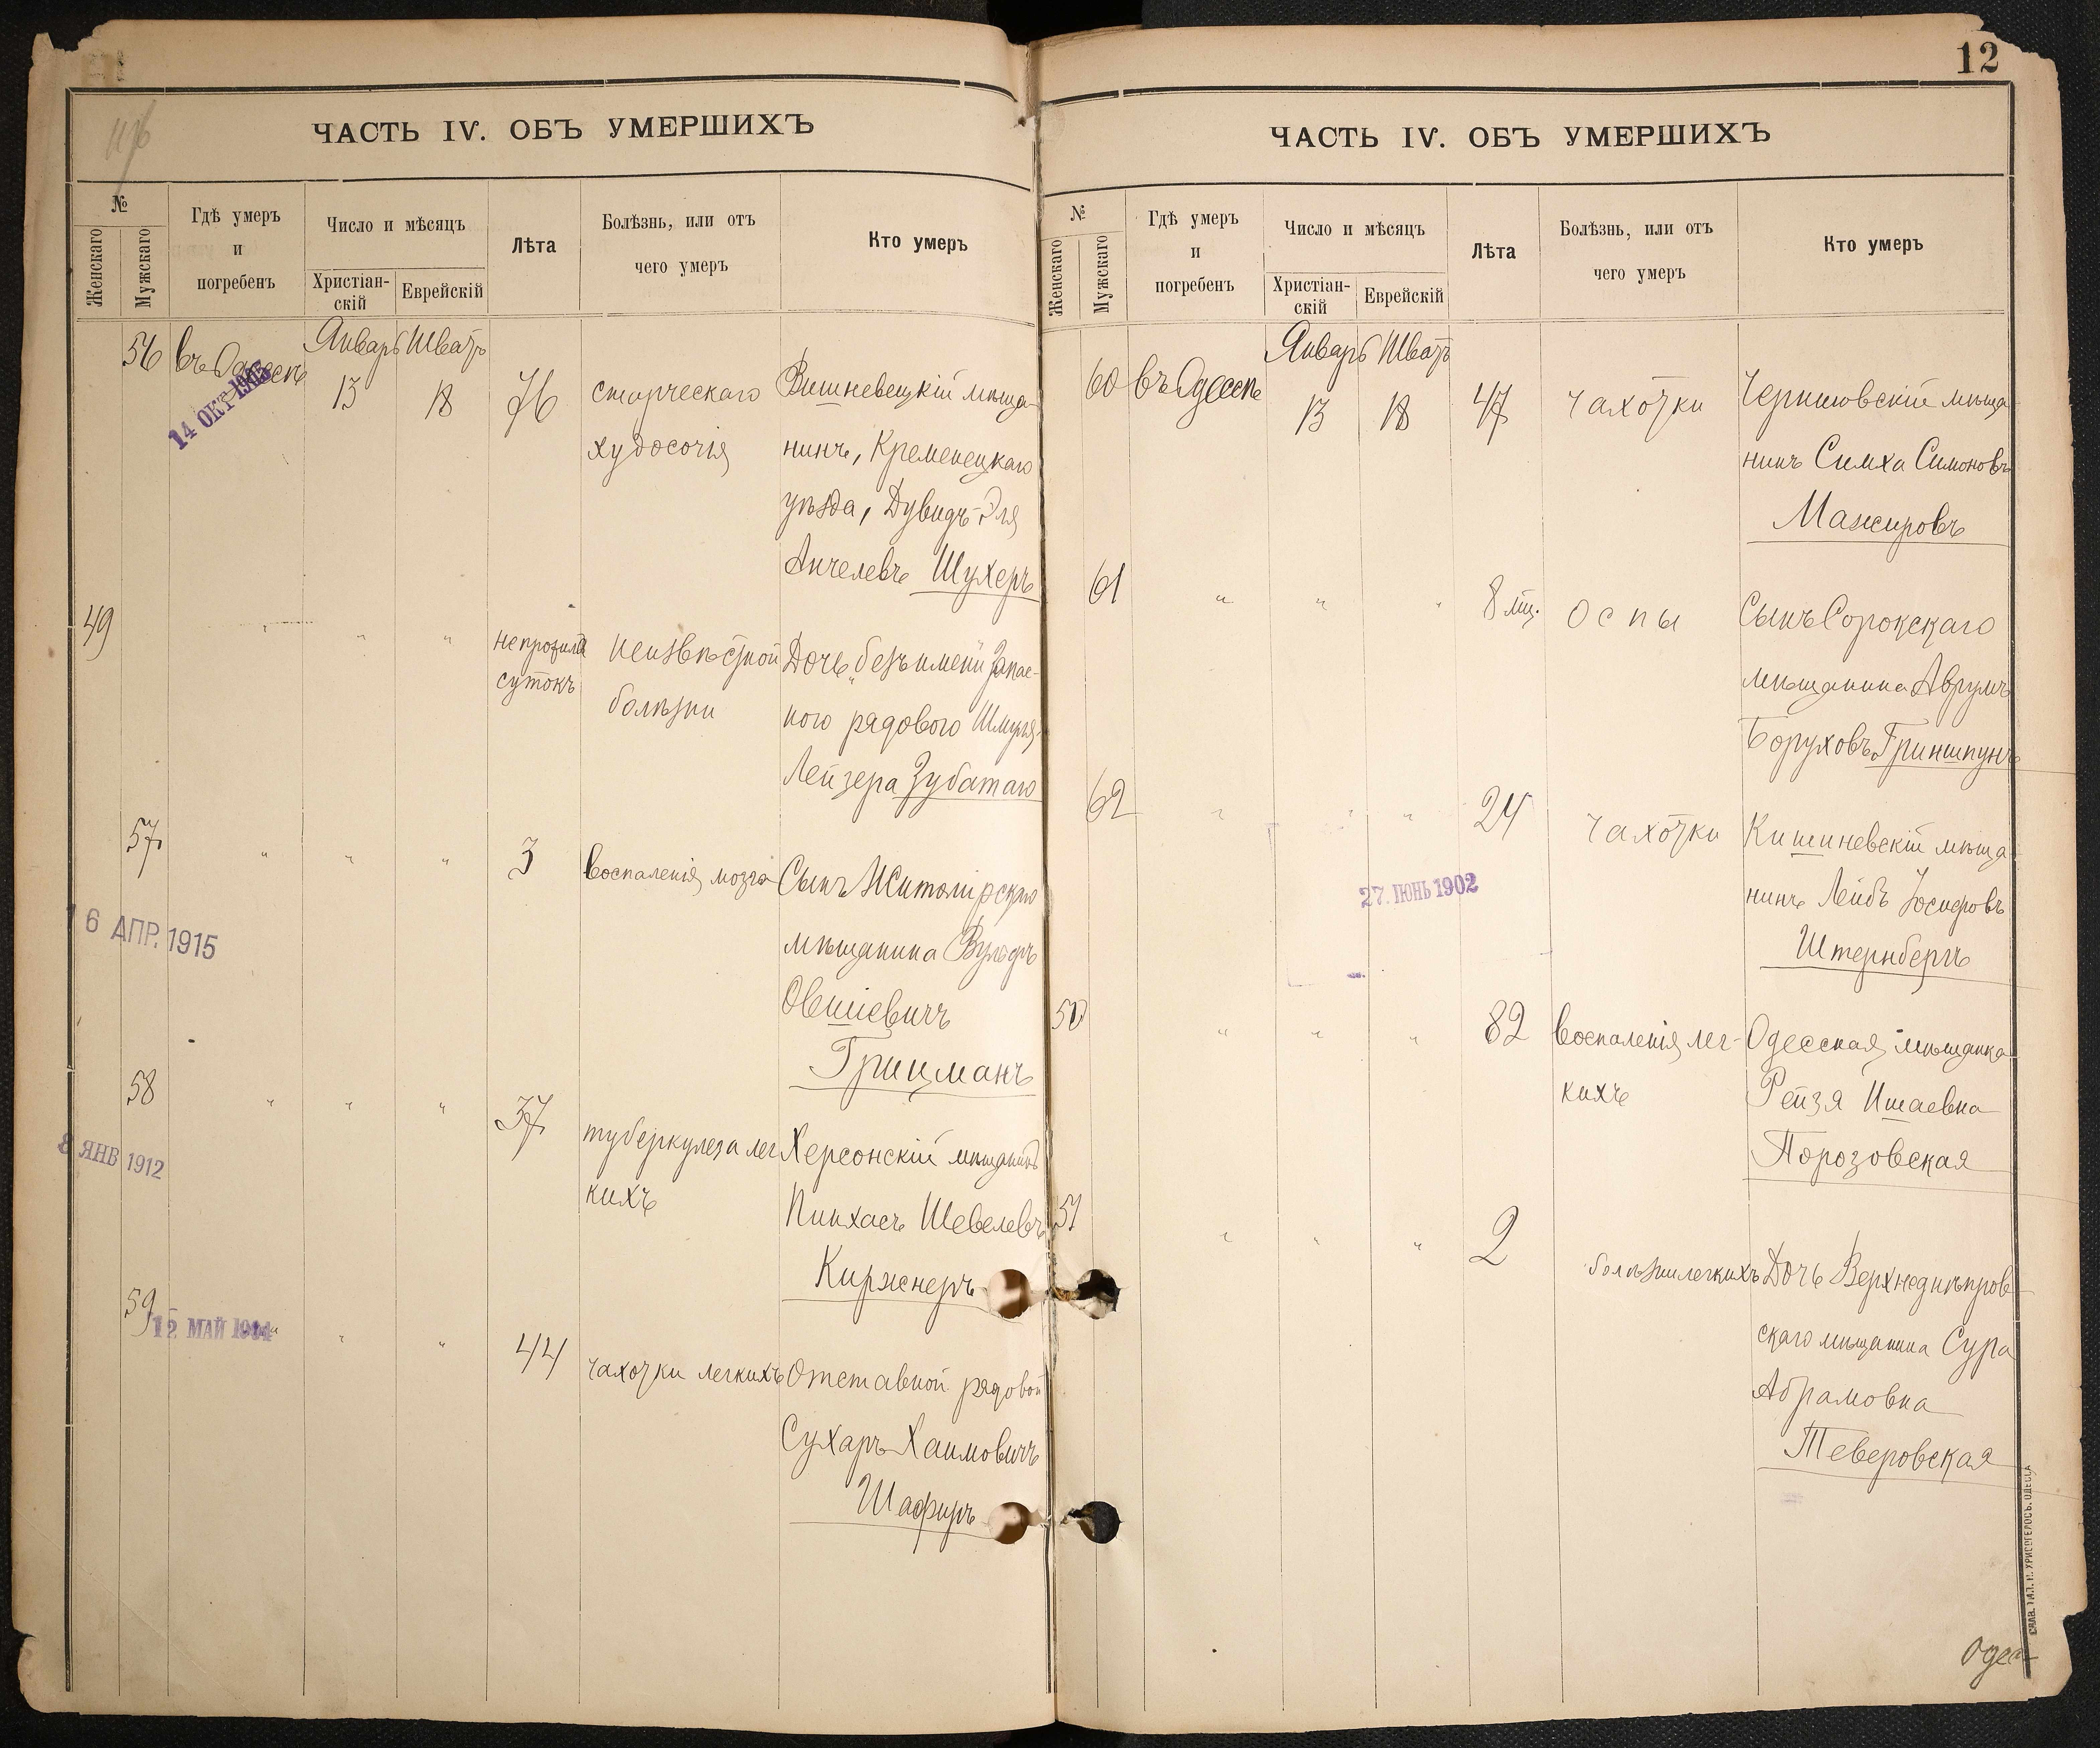 ЧАСТЬ IV. ОБЪ УМЕРШИХЪ
№
Женскаго
Мужскаго
Гдѣ умеръ
и
погребенъ
Число и мѣсяцъ
Христіан-
скій
Еврейскій
Лѣта
Болѣзнь, или отъ
чего умеръ
Кто умеръ
56 въ Одессѣ Январь Шватъ
13 18 76 старческаго Вишневецкій мѣща-
14 ОКТ 1905
худосочія нинъ, Кременецкаго
уѣзда, Дувидъ-Эля
Анчелевъ Шухеръ
49 " " " не прожила неизвѣстной Дочь „безъ имени" запас-
сутокъ болѣзни ного рядового Шмуля-
Лейзера Зубатаго
57 " " " 3 воспаленія мозга Сынъ Житомірскаго
16 АПР. 1915
мѣщанина Вульфъ
Овшіевичъ
Грицманъ
58 " " " 37 туберкулеза лег Херсонскій мѣщанинъ
8 ЯНВ 1912
кихъ Пинхасъ Шевелевъ
Киржнеръ
59 " " " 44 чахотки легкихъ Отставной рядовой
12 МАЙ 1904
Сухаръ Хаимовичъ
Шафиръ
12
ЧАСТЬ IV. ОБЪ УМЕРШИХЪ
№
Женскаго
Мужскаго
Гдѣ умеръ
и
погребенъ
Число и мѣсяцъ
Христіан-
скій
Еврейскій
Лѣта
Болѣзнь, или отъ
чего умеръ
Кто умеръ
60 въ Одессѣ Январь Шватъ
13 18 47 чахотки мѣща
нинъ Симха Симоновъ
Мажировъ
61 " " " 8 мѣц. оспы Сынъ Сорокскаго
мѣщанина Аврумъ
Боруховъ Гриншпунъ
62 " " " 24 чахотки Кишиневскій мѣща
27. ІЮНЬ 1902
нинъ Лейбъ Іосифовъ
Штернбергъ
50 " " " 82 воспаленія лег- Одесская мѣщанка
кихъ Рейзя Ишаевна
Порозовская
51 " " " 2 болѣзни легкихъ Дочь Верхнеднѣпров-
скаго мѣщанина Сура
Абрамовна
Теверовская
Одес
СЛАВ. ТИП. Н. ХРИСОГЕЛОСЪ. ОДЕССА